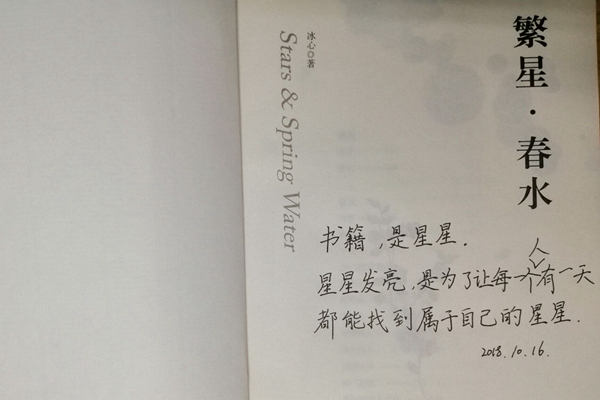 繁星·春水
冰心◎著
Stars & Spring Water
书籍，是星星．
星星发亮，是为了让每一个人有一天
都能找到属于自己的星星．
2018.10.16.